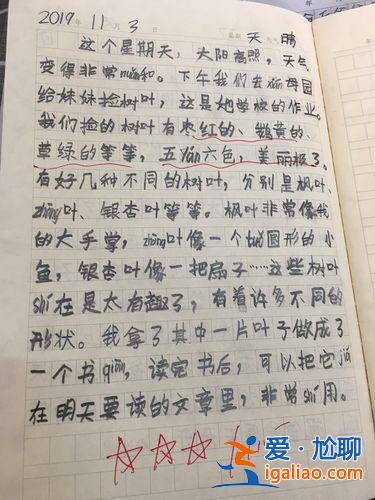 2019年 11月 3日 星期 天 天气 晴
这个星期天，大阳高照，天气
变得非常nuǎn和。下午我们去xiān母园
给妹妹捡树叶，这是她学校的作业。
我们捡的树叶有枣红的、鹅黄的、
草绿的等等，五yán六色，美丽极了。
有好几种不同的树叶，分别是枫叶、
zhāng叶、银杏叶等等。枫叶非常像我
的大手掌，zhāng叶像一个tuǒ圆形的小
鱼，银杏叶像一把扇子……这些树叶
shí在是太有趣了，有着许多不同的
形状。我拿了其中一片叶子做成了
一个书qiān，读完书后，可以把它jiā
在明天要读的文章里，非常shí用。
爱·尬聊
igaliao.com